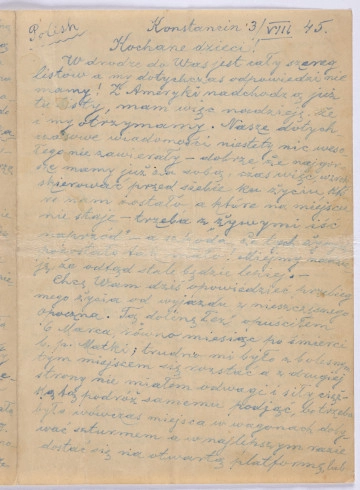 Polish
Konstancin 3/VIII 45.
Kochane dzieci!
W drodze do Was jest cały szereg
listów a my dotychczas odpowiedzi nie
mamy! Z Ameryki nadchodzą już
tu listy, mam więc nadzieję, że
i my otrzymamy. Nasze dotych
czasowe wiadomości niestety nic wese
łego nie zawierały - dobrze że najgor
sze mamy już za sobą, czas więc wzrok
skierować przed siebie ku życiu
nam zostało a które na miejscu
nie staje - trzeba z żywymi iść
naprzód" - a szkoda, że tak
Miejmy nadzie
ję że odtąd stale będzie lepiej. -
Chcę Wam dziś opowiedzieć przebieg
mego życia od wyjazdu z nieszczęsnego
Opoczna. Tą dolinę łez opuściłem
6 Marca, równo miesiąc po śmierci
ś. p. Matki; trudno mi było z bolesnym
tym miejscem się rozstać a z drugiej
strony nie miałem odwagi i siły cięż
ką tą podróż samemu podjąć, bo trzeba
było wówczas miejsca w wagonach doby
wać szturmem a w najlepszym razie
dostać się na otwartą platformę lub